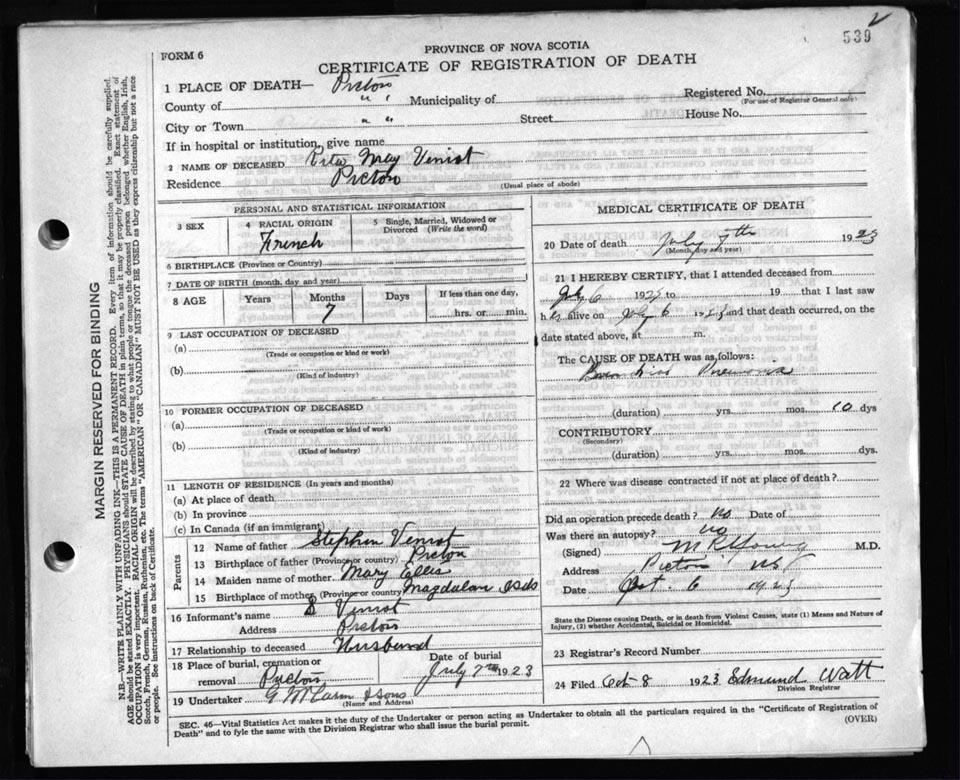 539 2
FORM 6
PROVINCE OF NOVA SCOTIA
CERTIFICATE OF REGISTRATION OF DEATH
1 PLACE OF DEATH— Pictou
County of " " Municipality of Registered No.
(For use of Registrar General only)
City or Town " " Street House No.
If in hospital or institution, give name
2 NAME OF DECEASED Rita May Veniot
Residence Pictou
(Usual place of abode)
PERSONAL AND STATISTICAL INFORMATION
3 SEX
4 RACIAL ORIGIN
French
5 Single, Married, Widowed or Divorced (Write the word)
6 BIRTHPLACE (Province or Country)
7 DATE OF BIRTH (month, day and year)
8 AGE Years Months Days If less than one day,
7 hrs. or min.
9 LAST OCCUPATION OF DECEASED
(a)
(Trade or occupation or kind or work)
(b)
(Kind of industry)
10 FORMER OCCUPATION OF DECEASED
(a)
(Trade or occupation or kind or work)
(b)
(Kind of industry)
11 LENGTH OF RESIDENCE (In years and months)
(a) At place of death
(b) In province
(c) In Canada (if an immigrant)
Parents
12 Name of father Stephen Veniot
13 Birthplace of father (Province or country) Pictou
14 Maiden name of mother Mary Ellis
15 Birthplace of mother (Province or country) Magdalen Islds
16 Informant's name S Veniot
Address Pictou
17 Relationship to deceased Husband
18 Place of burial, cremation or
removal Pictou
Date of burial
July 7th 1923
19 Undertaker G McLarn & Sons
(Name and Address)
MEDICAL CERTIFICATE OF DEATH
20 Date of death July 7th 1923
(Month, day and year)
21 I HEREBY CERTIFY, that I attended deceased from
July 6 1923 to 19 that I last saw
h alive on July 6 1923 and that death occurred, on the
date stated above, at m.
The CAUSE OF DEATH was as follows:
Bronchial Pneumonia
(duration) yrs. mos. 10 dys
CONTRIBUTORY
(Secondary)
(duration) yrs. mos. dys.
22 Where was disease contracted if not at place of death?
Did an operation precede death? No Date of
Was there an autopsy? No
(Signed) M R Young M.D.
Address Pictou NS
Date Oct. 6 1923
State the Disease causing Death, or in death from Violent Causes, state (1) Means and Nature of
Injury, (2) whether Accidental, Suicidal or Homicidal.
23 Registrar's Record Number
24 Filed Oct 8 1923 Edmund Watt
Division Registrar
SEC. 46—Vital Statistics Act makes it the duty of the Undertaker or person acting as Undertaker to obtain all the particulars required in the "Certificate of Registration of
Death" and to fyle the same with the Division Registrar who shall issue the burial permit.
(OVER)
MARGIN RESERVED FOR BINDING
N.B.—WRITE PLAINLY WITH UNFADING INK—THIS IS A PERMANENT RECORD. Every item of information should be carefully supplied.
AGE should be stated EXACTLY. PHYSICIANS should STATE CAUSE OF DEATH in plain terms, so that it may be properly classified. Exact statement of
OCCUPATION is very important. RACIAL ORIGIN will be described by stating to what people or tongue the deceased person belonged whether English, Irish,
Scotch, French, German, Russian, Ruthenian, etc. The terms "AMERICAN" OR "CANADIAN" MUST NOT BE USED as they express citizenship but not a race
or people. See instructions on back of Certificate.